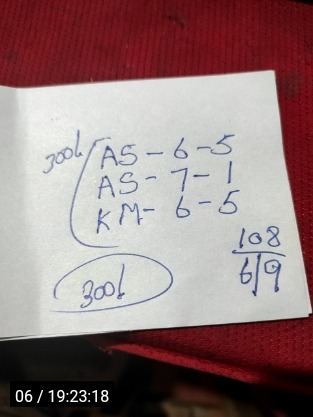 300/ AS - 6 - 5
AS - 7 - 1
KM - 6 - 5
108
6/9
300/
06 / 19:23:18